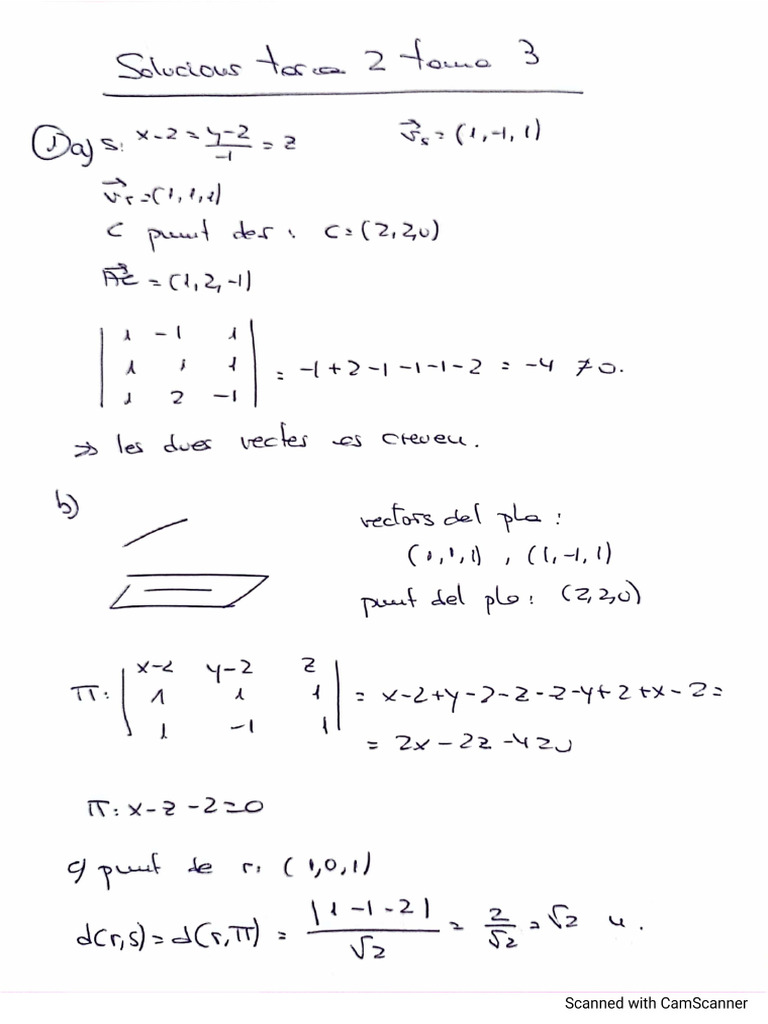 Solucions tasca 2 tema 3
1) a) s: x-2 = \frac{y-2}{-1} = z    \vec{v}_s = (1,-1,1)
\vec{v}_r = (1,1,1)
C punt de s: C = (2,2,0)
\vec{AC} = (1,2,-1)
| 1 -1 1 |
| 1 1 1 | = -1+2-1-1-1-2 = -4 ≠ 0.
| 1 2 -1 |
⇒ les dues rectes es creuen.
b)
vectors del pla:
(1,1,1), (1,-1,1)
punt del pla: (2,2,0)
π: | x-2 y-2 z |
| 1 1 1 | = x-2+y-2-z-z-y+2+x-2=
| 1 -1 1 |
= 2x-2z-4=0
π: x-z-2=0
c) punt de r: (1,0,1)
d(r,s) = d(r,π) = \frac{|1-1-2|}{√2} = \frac{2}{√2} = √2 u.
Scanned with CamScanner